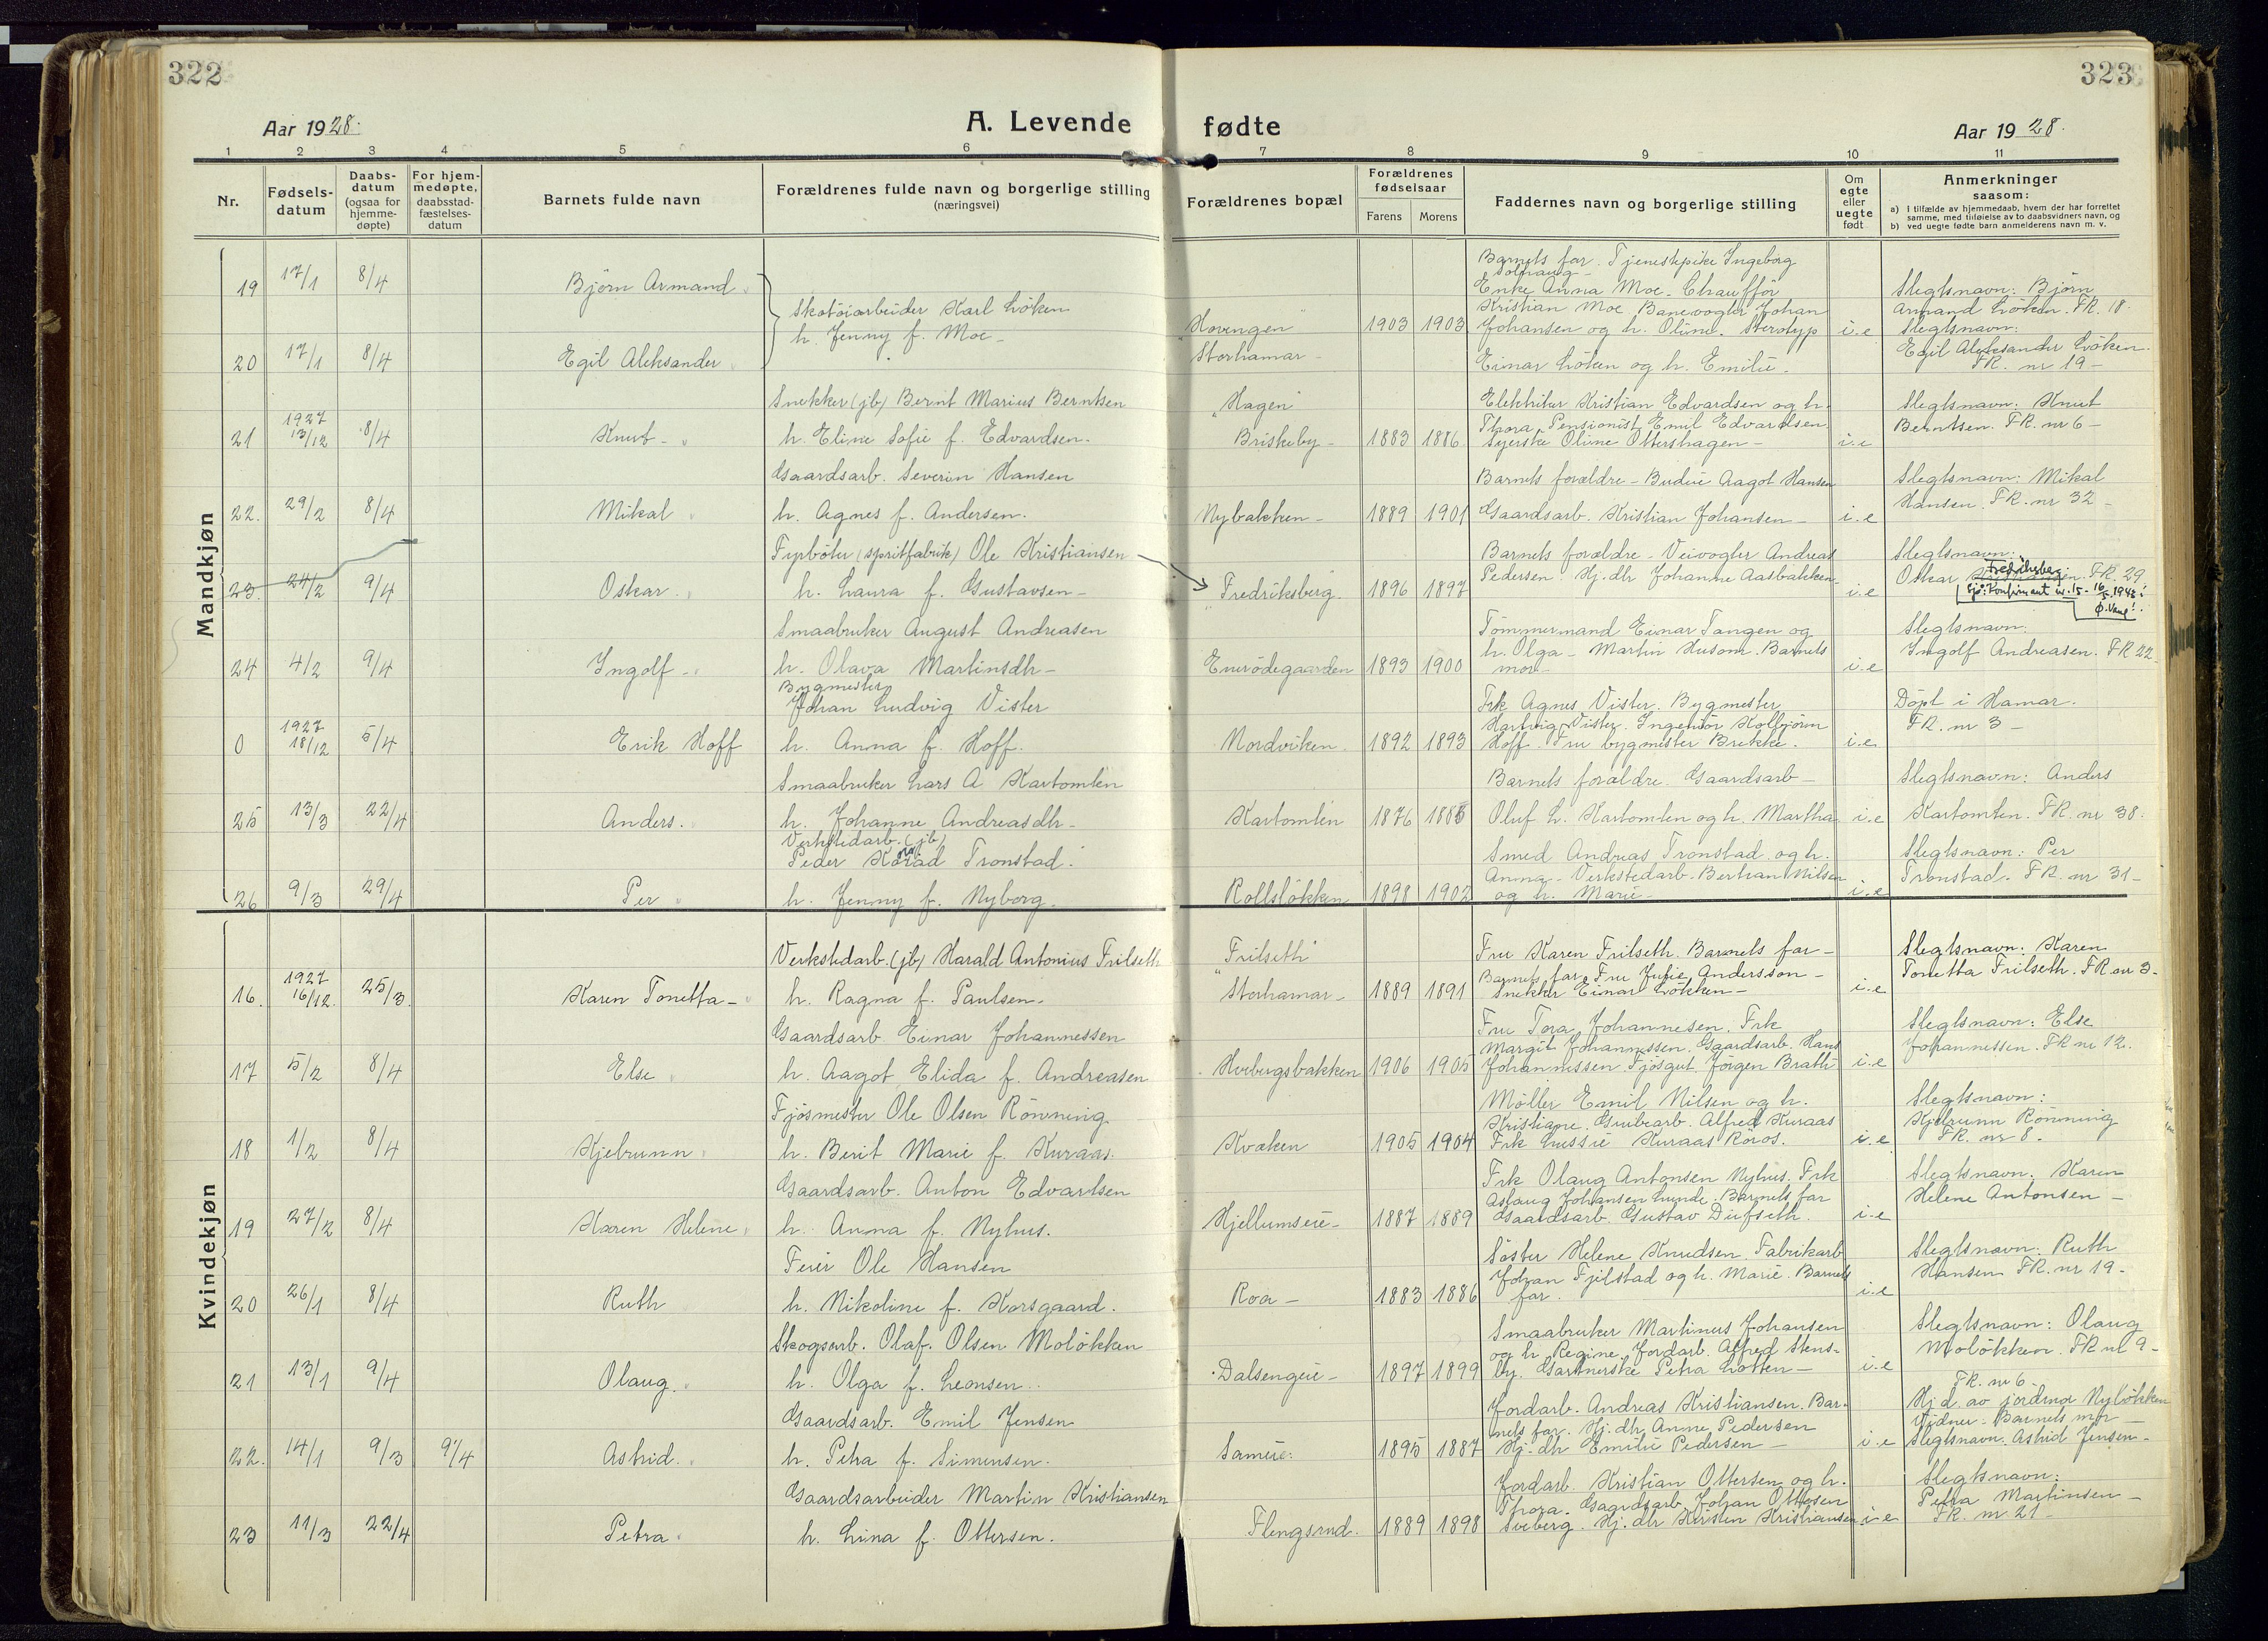 322
323
Aar 1928.
A. Levende fødte
Aar 1928.
1 2 3 4 5 6 7 8 9 10 11
Nr.
Fødsels-
datum
Daabs-
datum
(ogsaa for
hjemme-
døpte)
For hjem-
medøpte,
daabsstad-
fæstelses-
datum
Barnets fulde navn
Forældrenes fulde navn og borgerlige stilling
(næringsvei)
Forældrenes bopæl
Forældrenes
fødselsaar
Farens Morens
Faddernes navn og borgerlige stilling
Om
egte
eller
uegte
født
Anmerkninger
saasom:
a) i tilfælde av hjemmedaab, hvem der har forrettet
samme, med tilføielse av to daabsvidners navn, og
b) ved uegte fødte barn anmelderens navn m. v.
Mandkjøn
19 17/1 8/4 Bjørn Armand
20 17/1 8/4 Egil Aleksander
Skotøiarbeider Karl Løken
h. Jenny f. Moe -
"Hovengen"
Storhamar -
1903 1903
Barnets far. Tjenestepike Ingeborg
Solhaug -
Enke Anna Moe. Chauffør
Kristian Moe Banevogter Johan
Johansen og h. Oline. Sterotyp
Einar Løken og h. Emilie.
i.e
Slegtsnavn: Bjørn
Armand Løken. FR. 18.
Slegtsnavn:
Egil Aleksander Løken.
FR. nr 19 -
21 1927 13/12 8/4 Knut -
Snekker (jb) Bernt Marius Berntsen
h. Eline Sofie f. Edvardsen -
"Hagen"
Briskeby - 1883 1886
Elektriker Kristian Edvardsen og h.
Thora, Pensionist Emil Edvardsen
Syerske Oline Ottershagen -
i.e
Slegtsnavn: Knut
Berntsen. FR. nr 6 -
22. 29/2 8/4 Mikal
Gaardsarb. Severin Hansen
h. Agnes f. Andersen.
Nybakken - 1889 1901
Barnets forældre - Budeie Aagot Hansen
Gaardsarb. Kristian Johansen - i.e
Slegtsnavn: Mikal
Hansen. FR. nr 32 -
23. 24/2 9/4 Oskar.
Fyrbøter (spritfabrik) Ole Kristiansen
h. Laura f. Gustavsen -
"Fredriksberg. 1896 1897
Barnets forældre - Veivogter Andreas
Pedersen. Hj. dtr Johanne Aasbakken -
i.e
Slegtsnavn:
Oskar Kristiansen. FR. 29
Fredriksberg
Konfirmant nr. 15 -
24 4/2 9/4 Ingolf -
Smaabruker August Andreasen
h. Olava Martinsdtr -
Enerødegaarden 1893 1900
Tømmermand Einar Tangen og
h. Olga - Martin Husom. Barnets
mor - i.e
Slegtsnavn:
Ingolf Andreasen. FR 22 -
0 1927 18/12 5/4 Erik Hoff
Bygmester
Johan Ludvig Vister
h. Anna f. Hoff.
Nordviken. 1892 1893
Frk Agnes Vister. Bygmester
Hartvig Vister. Ingeniør Kolbjørn
Hoff. Fru bygmester Brekke. i.e
Døpt i Hamar.
FR. nr 3 -
25 13/3 22/4 Anders.
Smaabruker Lars A Kartomten
h. Johanne Andreasdtr -
Kartomten 1876 1885
Barnets forældre. Gaardsarb -
Oluf L. Kartomten og h. Martha i.e
Slegtsnavn: Anders
Kartomten. FR. nr 38.
26 9/3 29/4 Per
Verkstedarb. (jb)
Peder Konrad Tronstad.
h. Jenny f. Nyborg.
Rollsløkken 1898 1902
Smed Andreas Tronstad og h.
Anna - Verkstedarb. Bertran Nilsen
og h. Marie - i.e
Slegtsnavn: Per
Tronstad. FR. nr 31 -
Kvindekjøn
16. 1927 16/12. 25/3. Karen Tonetta -
Verkstedarb. (jb) Harald Antonius Frilseth
h. Ragna f. Paulsen -
"Frilseth"
Storhamar - 1889 1891
Fru Karen Frilseth. Barnets far -
Barnets far, Fru Julie Andersson -
Snekker Einar Løkken - i.e
Slegtsnavn: Karen
Tonetta Frilseth. FR nr 3 -
17 5/2 8/4 Else
Gaardsarb Einar Johannessen
h. Aagot Elida f. Andreasen
Hverbergsbakken 1906 1905
Fru Tora Johannesen. Frk
Margit Johannessen. Gaardsarb. Hans
Johannessen Fjøsgut Jørgen Bråthe i.e
Slegtsnavn: Else
Johannessen. FR nr 12.
18 1/2 8/4 Kjebrunn
Fjøsmester Ole Olsen Rønning
h. Berit Marie f. Kuraas.
Kvæken 1905 1904
Møller Emil Nilsen og h.
Kristiane. Grubearb. Alfred Kuraas
Frk Lussie Kuraas Røros. i.e
Slegtsnavn:
Kjebrunn Rønning
FR. nr 8.
19 27/2 8/4 Karen Helene
Gaardsarb. Anton Edvartsen
h. Anna f. Nyhus.
Hjellumseie - 1887 1889
Frk Olaug Antonsen Nyhus. Frk
Aslaug Johansen Lunde. Barnets far
Gaardsarb. Gustav Dufseth. i.e
Slegtsnavn: Karen
Helene Antonsen -
20 26/1 8/4 Ruth
Feier Ole Hansen
h. Nikoline f. Korsgaard.
Roa - 1883 1886
Søster Helene Knudsen. Fabrikarb
Johan Fjelstad og h. Marie. Barnets
far. i.e
Slegtsnavn: Ruth
Hansen FR. nr 19 -
21 13/1 9/4 Olaug.
Skogsarb. Olaf. Olsen Moløkken
h. Olga f. Leonsen.
Dalsengeie - 1897 1899
Smaabruker Martinus Johansen
og h Regine, Jordarb. Alfred Stens-
by. Gartnerske Petra Lotten - i.e
Slegtsnavn: Olaug
Moløkken. FR nr 9 -
22. 14/1 9/3 9/4 Astrid.
Gaardsarb. Emil Jensen
h. Petra f. Simensen.
Sameie: 1895 1887
Jordarb. Andreas Kristiansen. Bar-
nets far. Hj. dtr. Anne Pedersen
Hj. dtr Emilie Pedersen - i.e
FR. nr 6
Hj d. av jordmor Nyløkken
Vidner - Barnets mor -
Slegtsnavn. Astrid Jensen -
23 11/3 22/4 Petra
Gaardsarbeider Martin Kristiansen
h. Lina f. Ottersen.
Flengsrud. 1889 1898
Jordarb. Kristian Ottersen og h.
Thora. Gaardsarb Johan Ottesen
Sveberg. Hj. dtr Kristen Kristiansen i-e
Slegtsnavn:
Petra Martinsen -
FR. nr 21 -